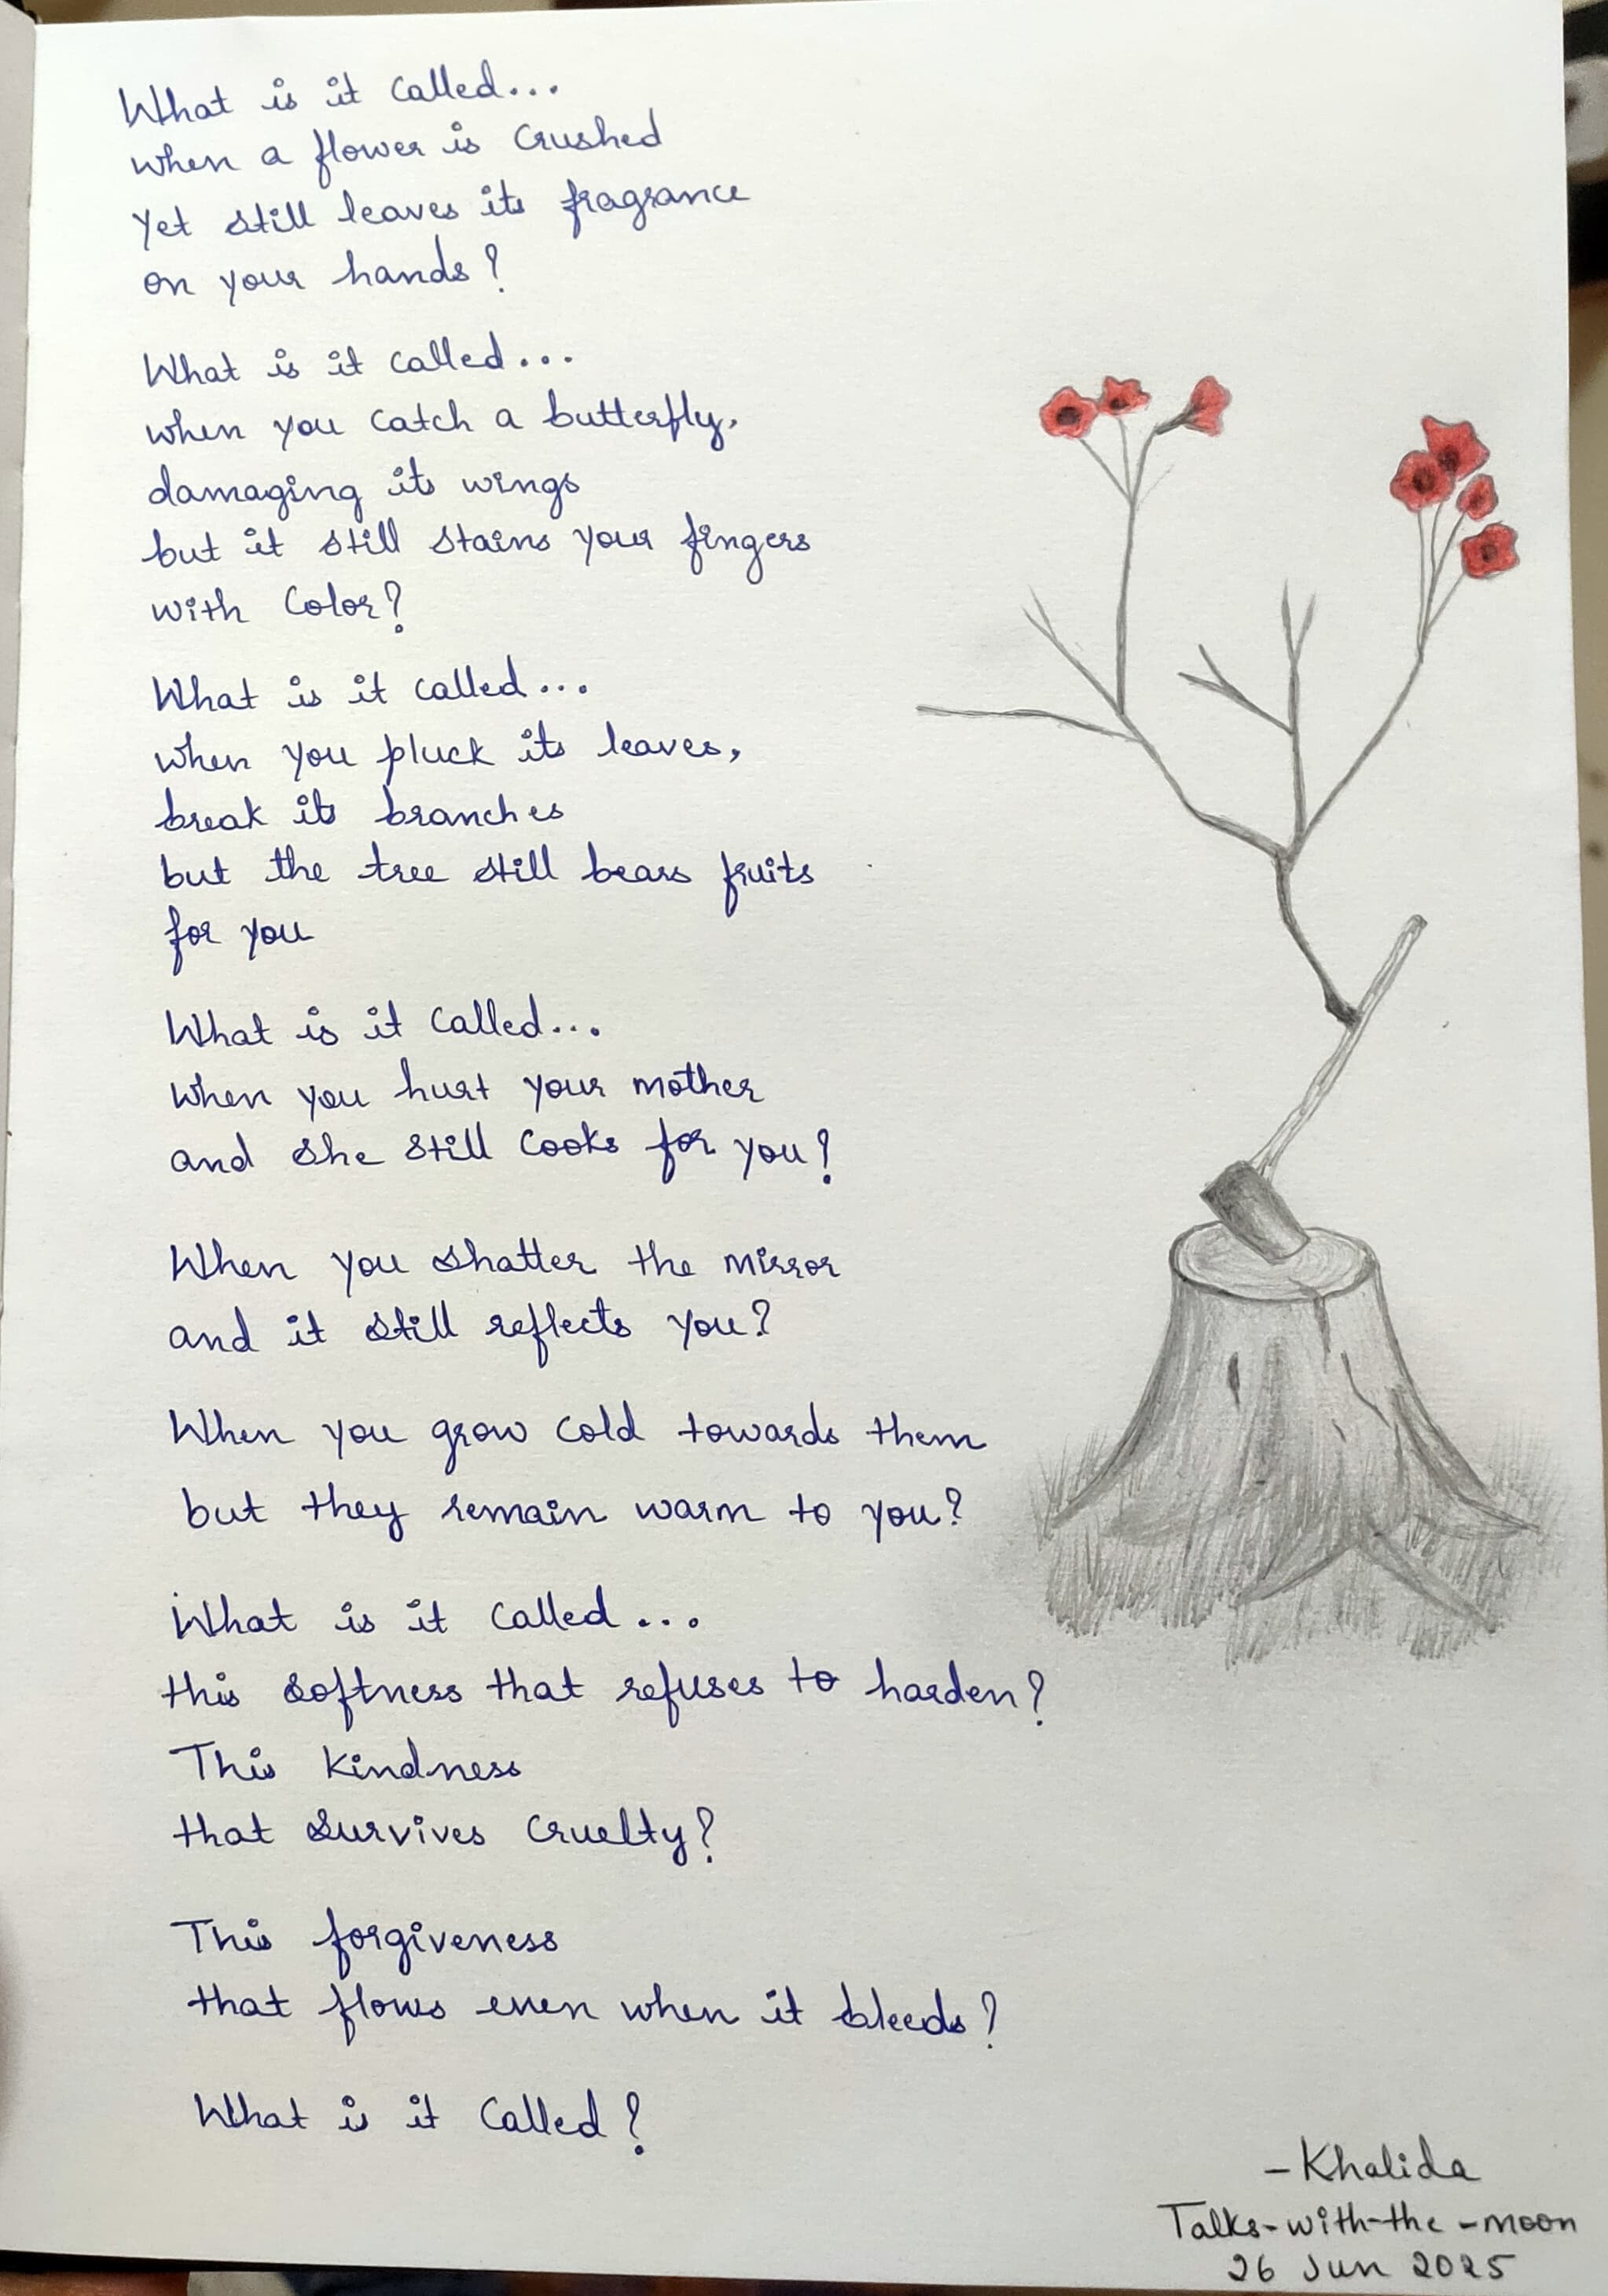 What is it called...
when a flower is crushed
Yet still leaves its fragrance
on your hands?
What is it called...
when you catch a butterfly,
damaging its wings
but it still stains your fingers
with color?
What is it called...
when you pluck its leaves,
break its branches
but the tree still bears fruits
for you
What is it called...
when you hurt your mother
and she still cooks for you?
When you shatter the mirror
and it still reflects you?
When you grow cold towards them
but they remain warm to you?
What is it called...
this softness that refuses to harden?
This kindness
that survives cruelty?
This forgiveness
that flows even when it bleeds?
What is it called?
-Khalida
Talks-with-the-moon
26 Jun 2025